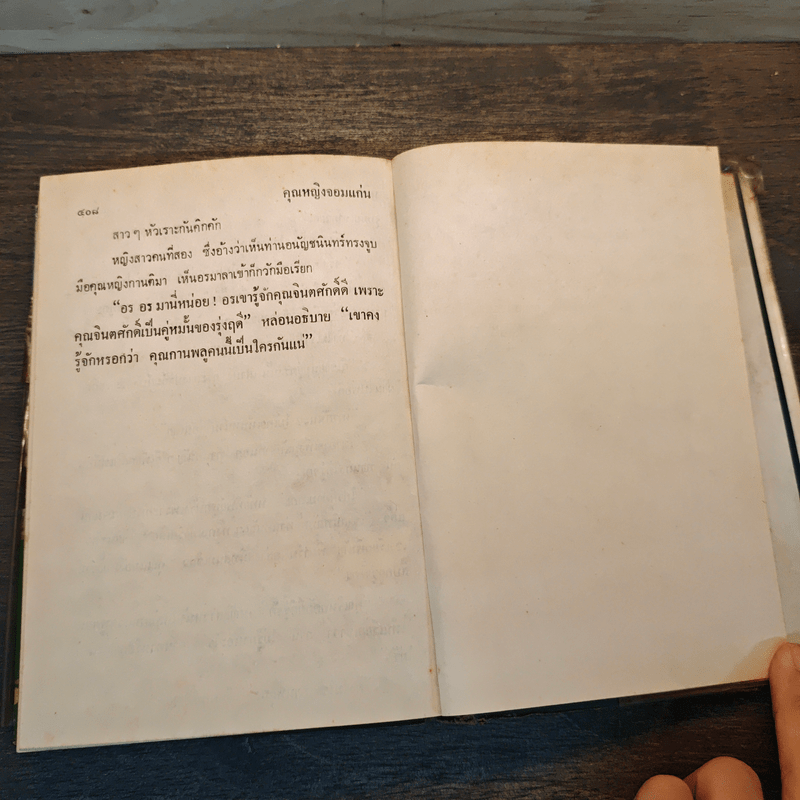 ๔๐๘
คุณหญิงจอมแก่น
สาว ๆ หัวเราะกันคิกคัก
หญิงสาวคนที่สอง ซึ่งอ้างว่าเห็นท่านอนัญชนินทร์ทรงจูบ
มือคุณหญิงกานติมา เห็นอรมาลาเข้าก็กวักมือเรียก
“อร อร มานี่หน่อย ! อรเขารู้จักคุณจินตศักดิ์ดี เพราะ
คุณจินตศักดิ์เป็นคู่หมั้นของรุ่งฤดี” หล่อนอธิบาย “เขาคง
รู้จักหรอกว่า คุณกานพลูคนนี้เป็นใครกันแน่”